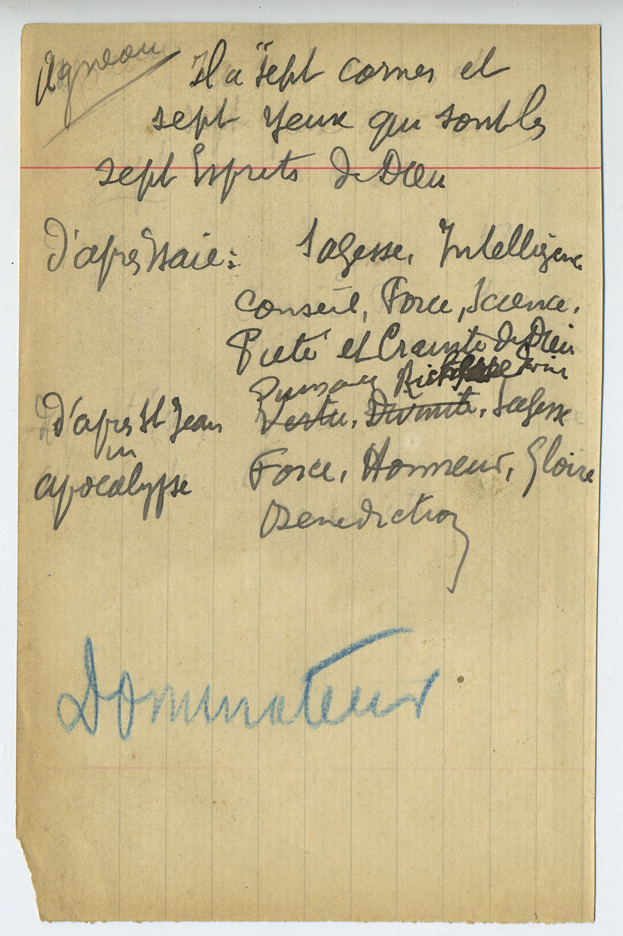 Agneau
Il a sept cornes et
sept yeux qui sont les
sept Esprits de Dieu
d'après Isaie : Sagesse, Intelligence
conseil, Force, Science,
Pieté et Crainte de Dieu
Puissance
d'après St Jean Vertu, Divinité, Sagesse
in
apocalypse Force, Honneur, Gloire
Benediction
Dominateur